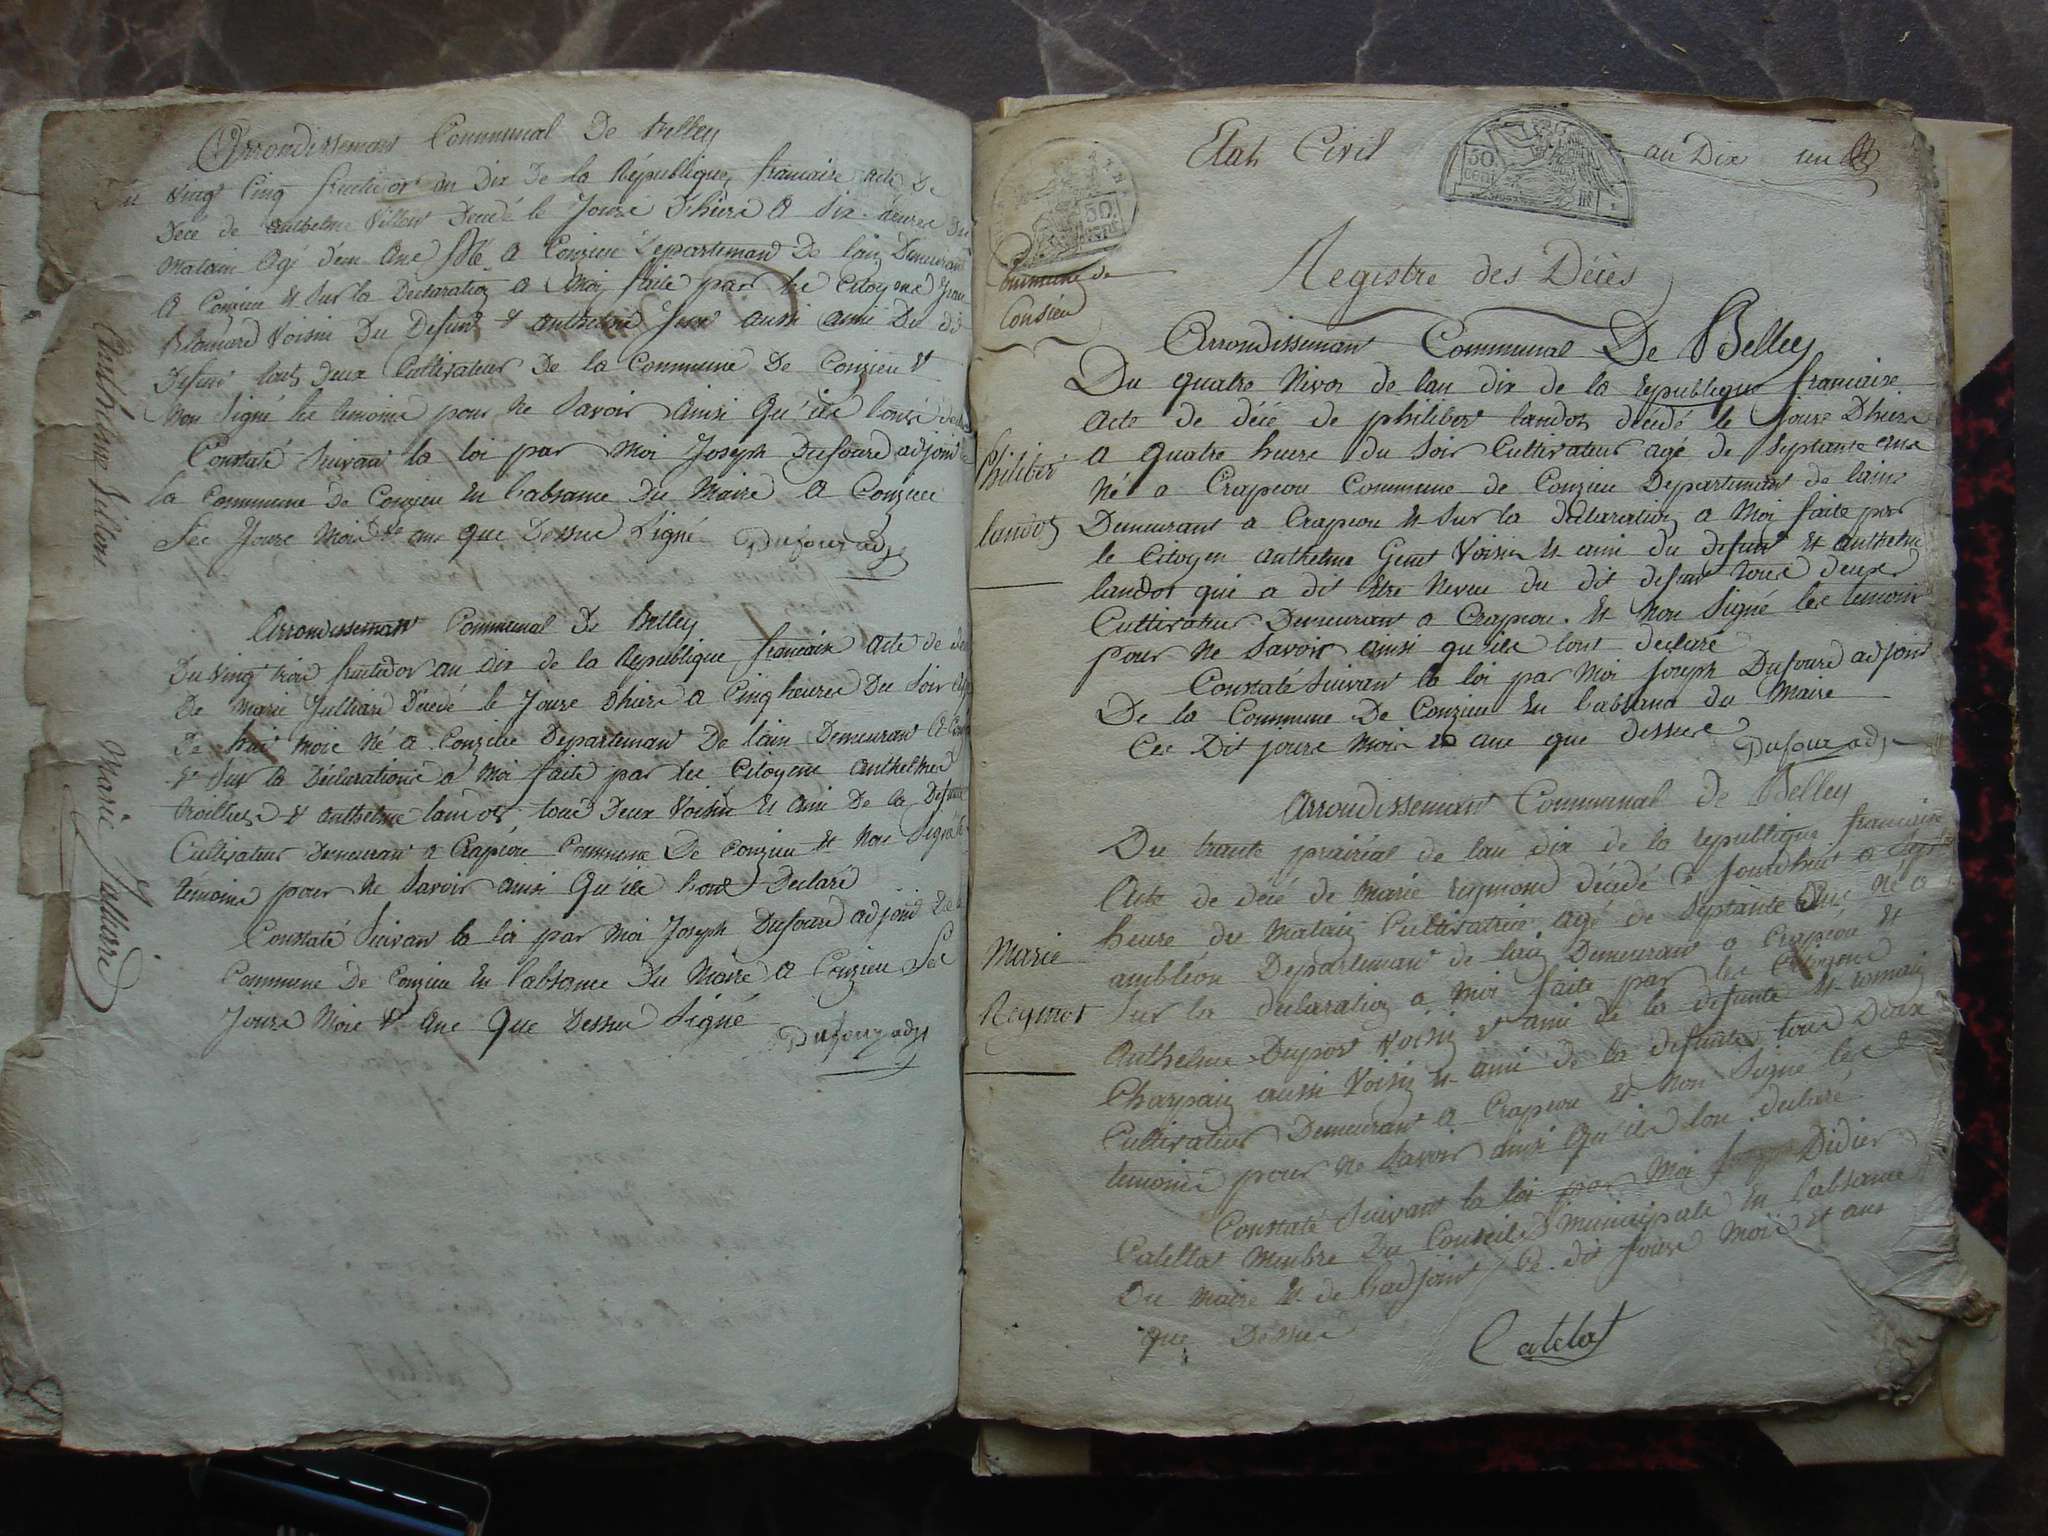 Arrondissement Communal De Belley
Du vingt Cinq fructidor an dix De la République francaise acte De
Décé de anthelme Villon Décédé le Joure d'hiere a Six heures Du
Matain agé d'un ane Né a Conzieu Departeman De lain Demeurant
a Conzieu et Sur la Declaration a Moi faite par les Citoyens
voisin Du Defunt et anthelme aussi ami Du dit
Defunt tout deux Cultivateur De la Commune De Conzieu et
Non Signé les temoins pour Ne Savoir ainsi Qu'ile
Constaté Suivan la loi par Moi Joseph Dufoure adjoint
la Commune de Conzieu En l'absance Du Maire a Conzieu
Joure Moi et ane que Dessue Signé Dufour adj
Arrondisseman Communal De Belley
Du vingt trois fructidor an dix de la République francaise acte de
De Marie Julliard Décédé le Joure dhiere a Cinq heures Du Soir
De huit Mois Né a Conzieu Departeman De lain Demeuran a
et Sur la Déclaration a Moi faite par les Citoyens anthelme
et anthelme landos tous Deux Voisin et ami De la Defunte
Cultivateur Demeuran a Crapéou Commune De Conzieu et Non Signé
témoins pour Ne Savoir ainsi Qu'ile Declaré
Constaté Suivan la loi par Moi Joseph Dufoure adjoint
Commune De Conzieu En l'absance Du Maire a Conzieu
Joure Moi et ane Que Dessue Signé
Dufour adj
Anthelme Villon
Marie Julliard
Etat Civil
an Dix
un
50
cent
50
Commune de
Consieu
Registre des Décès
Arrondisseman Communal De Belley
Philiber
landos
Du quatre Nivos de lan dix de la republique francaise
acte de décé de philiber landos décédé le joure Dhiere
a quatre heure du Soir Cultivateur agé de Septante
Né a Crapeou Commune de Conzieu Departeman de
Demeurant a Crapeou et Sur la declaration a Moi faite par
le Citoyen anthelme Voisin et ami du defunt et anthelme
landos qui a dit Etre Neveu du dit defunt tous deux
Cultivateur Demeurant a Crapeou et Non Signé les temoins
pour Ne Savoir ainsi qu'ile lont declaré
Constaté Suivan la loi par Moi Joseph Dufoure adjoint
De la Commune De Conzieu En l'absance du Maire
Ces Dit joure Mois et ane que dessue
Dufour adj
Arrondisseman Communal de Belley
Marie
Reymot
Du trante prairial de lan dix de la republique francaise
Acte de décé de Marie reymond décédé Jourdhui a
heure du Matain Cultivatrice agé de Septante Né a
ambléon Departeman de lain Demeuran a Crapéou et
Sur la declaration a Moi faite par les Citoyens
Anthelme Dupor Voisin et ami de la defunte et romain
Charpain aussi Voisin et ami de la defunte tous Deux
Cultivateur Demeurant a Crapeou et Non Signé les
temoins pour Ne Savoir ainsi Qu'ile lon declaré
Constaté Suivan la loi par Moi Didier
Catellat Menbre Du Conseil Municipale En l'absance
Du Maire et de l'adjoint Ce dit Joure Mois et ans
que Dessue
Catelat